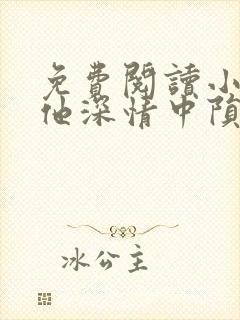 免費閱讀小
他深情中隕
冰公主